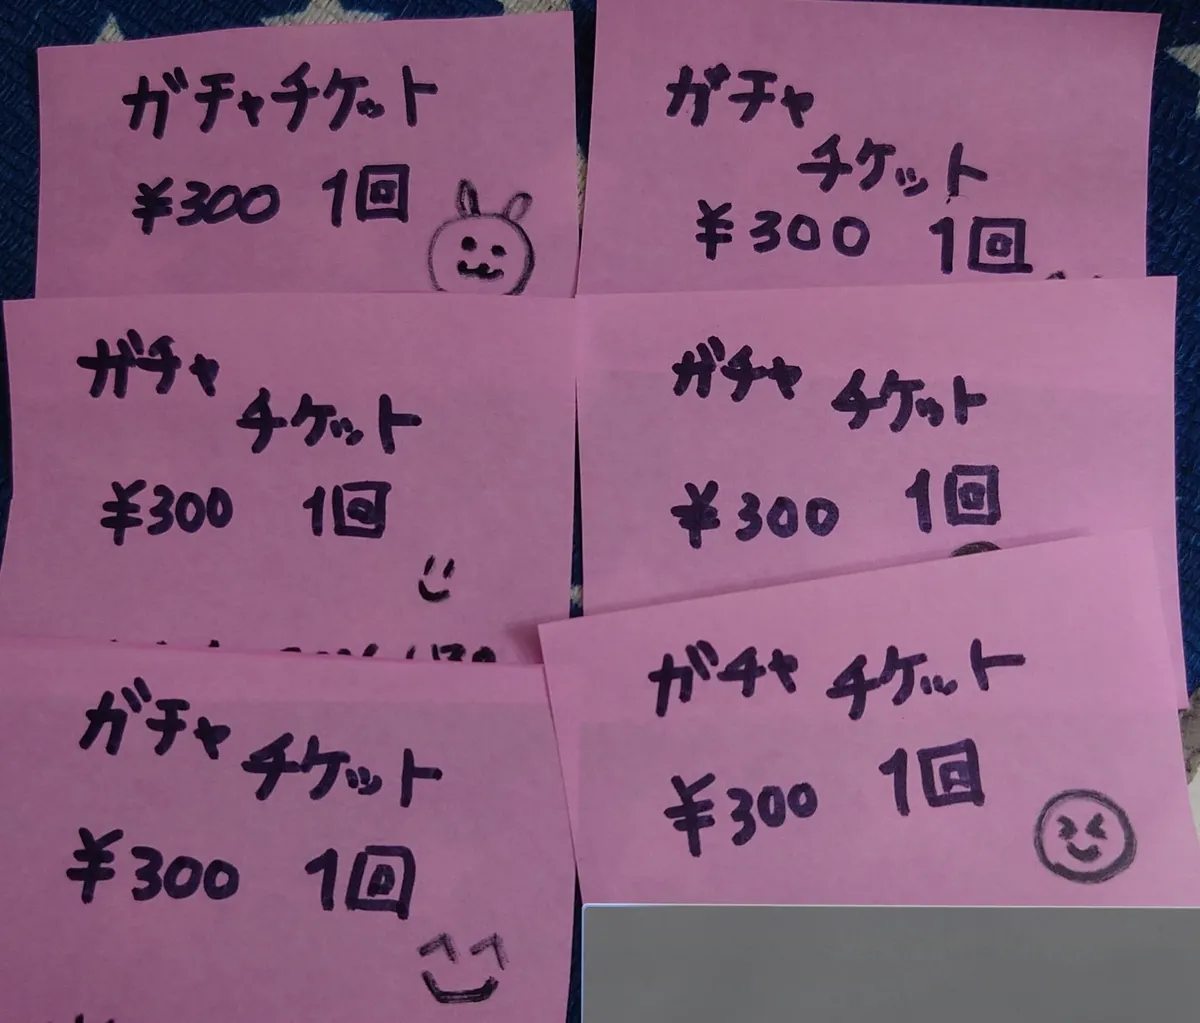 ガチャチケット
¥300 1回
ガチャ
チケット
¥300 1回
ガチャ
チケット
¥300 1回
ガチャ チケット
¥300 1回
ガチャ
チケット
¥300 1回
ガチャ チケット
¥300 1回